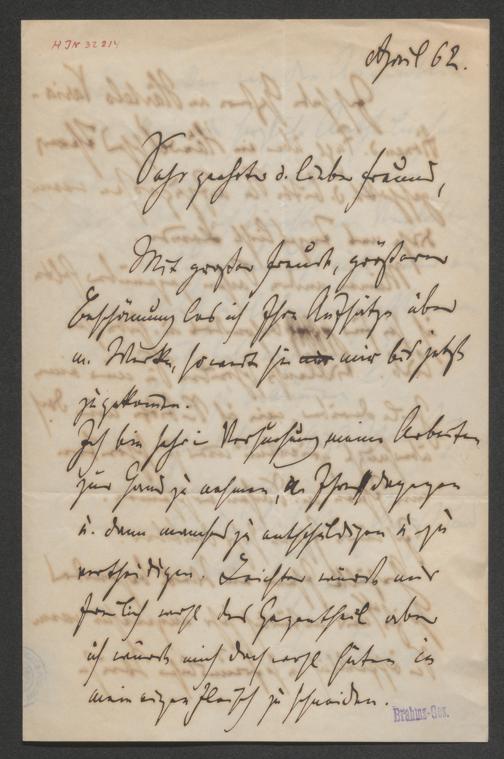 HJN 32214
April 62.
Sehr geehrter u. lieber Freund,
Mit großer Freude, größerer
Beschämung las ich Ihre Aufsätze über
m. Werke, soweit sie mir bis jetzt
zugekommen.
Ich bin sehr in Versuchung meine Arbeiten
zur Hand zu nehmen, Ihren dagegen
u. dann manches zu entschuldigen u. zu
vertheidigen. Leichter würde mir
freilich wohl das Gegentheil aber
ich würde mich doch wohl hüten in
mein eigen Fleisch zu schneiden.
Brahms-Ges.